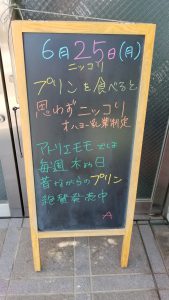 6月25日(月)
ニッコリ
プリンを食べると
思わずニッコリ
オハヨー乳業制定
アトリエモモでは
毎週 木曜日
昔ながらのプリン
絶賛発売中
A